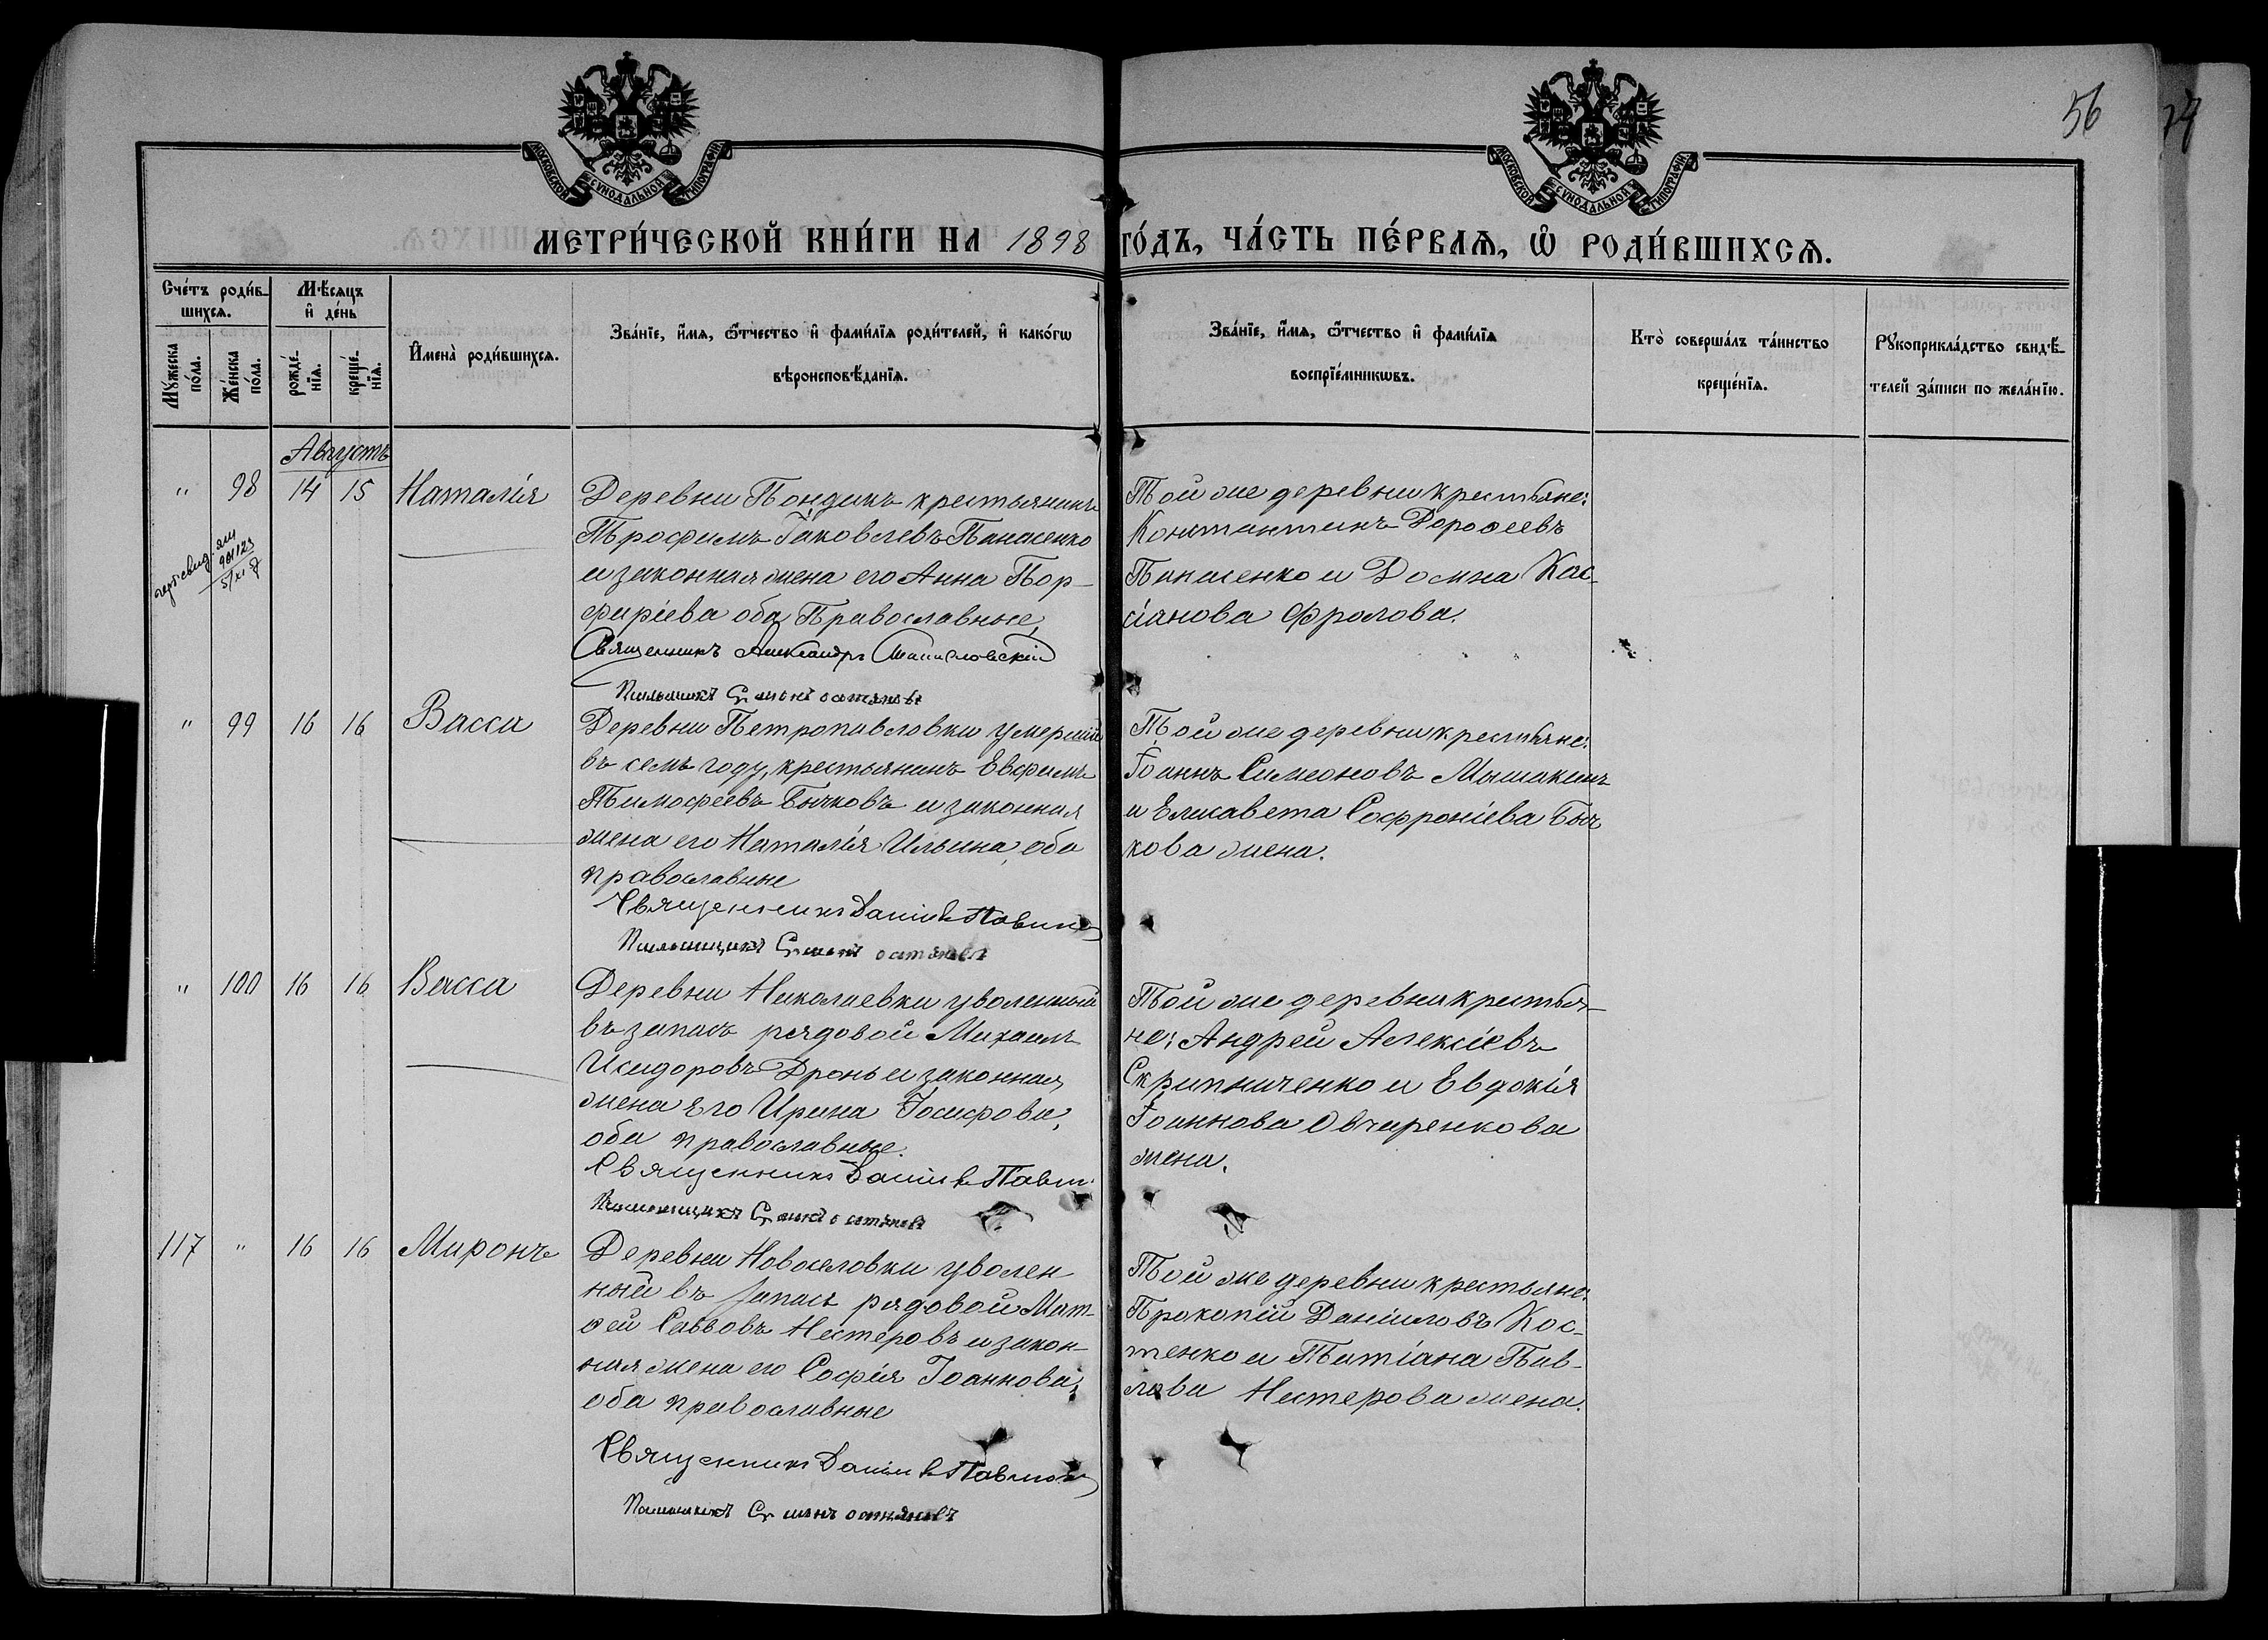 56
МОСКОВСКОЙ СѴНОДАЛЬНОЙ ТИПОГРАФІИ
МОСКОВСКОЙ СѴНОДАЛЬНОЙ ТИПОГРАФІИ
МЕТРИ́ЧЕСКОЙ КНИ́ГИ НА 1898 ГО́ДЪ, ЧА́СТЬ ПЕ́РВАѦ, Ѡ҆ РОДИ́ВШИХСѦ.
Сче́тъ роди́в-
шихсѧ.
Мꙋжеска
по́ла.
Же́нска
по́ла.
Мѣ́сѧцъ
и҆ де́нь
рожде́-
нїѧ.
креще́-
нїѧ.
И҆мена̀ роди́вшихсѧ.
Зва́нїе, и҆́мѧ, ѻ҆́тчество и҆ фами́лїѧ роди́телей, и҆ како́гѡ
вѣроисповѣ́данїѧ.
Зва́нїе, и҆́мѧ, ѻ҆́тчество и҆ фами́лїѧ
воспрїе́мникѡвъ.
Кто̀ соверша́лъ та́инство
креще́нїѧ.
Рꙋкоприкла́дство свидѣ́-
телей за́писи по жела́нїю.
Августъ
" 98 14 15 Наталія
Деревни Пондикъ крестьянинъ
Трофимъ Іаковлевъ Панасенко
и законная жена его Анна Пор-
фиріева оба Православные
Священникъ Александръ
Псаломщикъ
Той же деревни крестьяне:
Константинъ Дорофеевъ
Панасенко и Домна Кас-
сіанова Фролова.
" 99 16 16 Васса
Деревни Петропавловки умершій
въ семъ году, крестьянинъ Евфимъ
Тимофеевъ Бычковъ и законная
жена его Наталія Ильина, оба
православные
Священникъ Даніилъ Павлов
Псаломщикъ
Той же деревни крестьяне:
Іоаннъ Симеоновъ Мышакинъ
и Елисавета Софроніева Быч
кова жена.
" 100 16 16 Васса
Деревни Николаевки уволенный
въ запасъ рядовой Михаилъ
Исидоровъ Дронь и законная
жена его Ирина Іосифова,
оба православные.
Священникъ Даніилъ Павл
Псаломщикъ
Той же деревни крестья-
не: Андрей Алексіевъ
Скрипниченко и Евдокія
Іоаннова Овчаренкова
жена.
117 " 16 16 Миронъ
Деревни Новоселовки уволен
ный въ запасъ рядовой Мат-
ѳей Саввовъ Нестеровъ и закон
ная жена его Софія Іоаннова,
оба православные
Священникъ Даніилъ Павлов
Псаломщикъ
Той же деревни крестьяне:
Прокопій Даниловъ Кос-
тенко и Татіана Пав-
лова Нестерова жена.